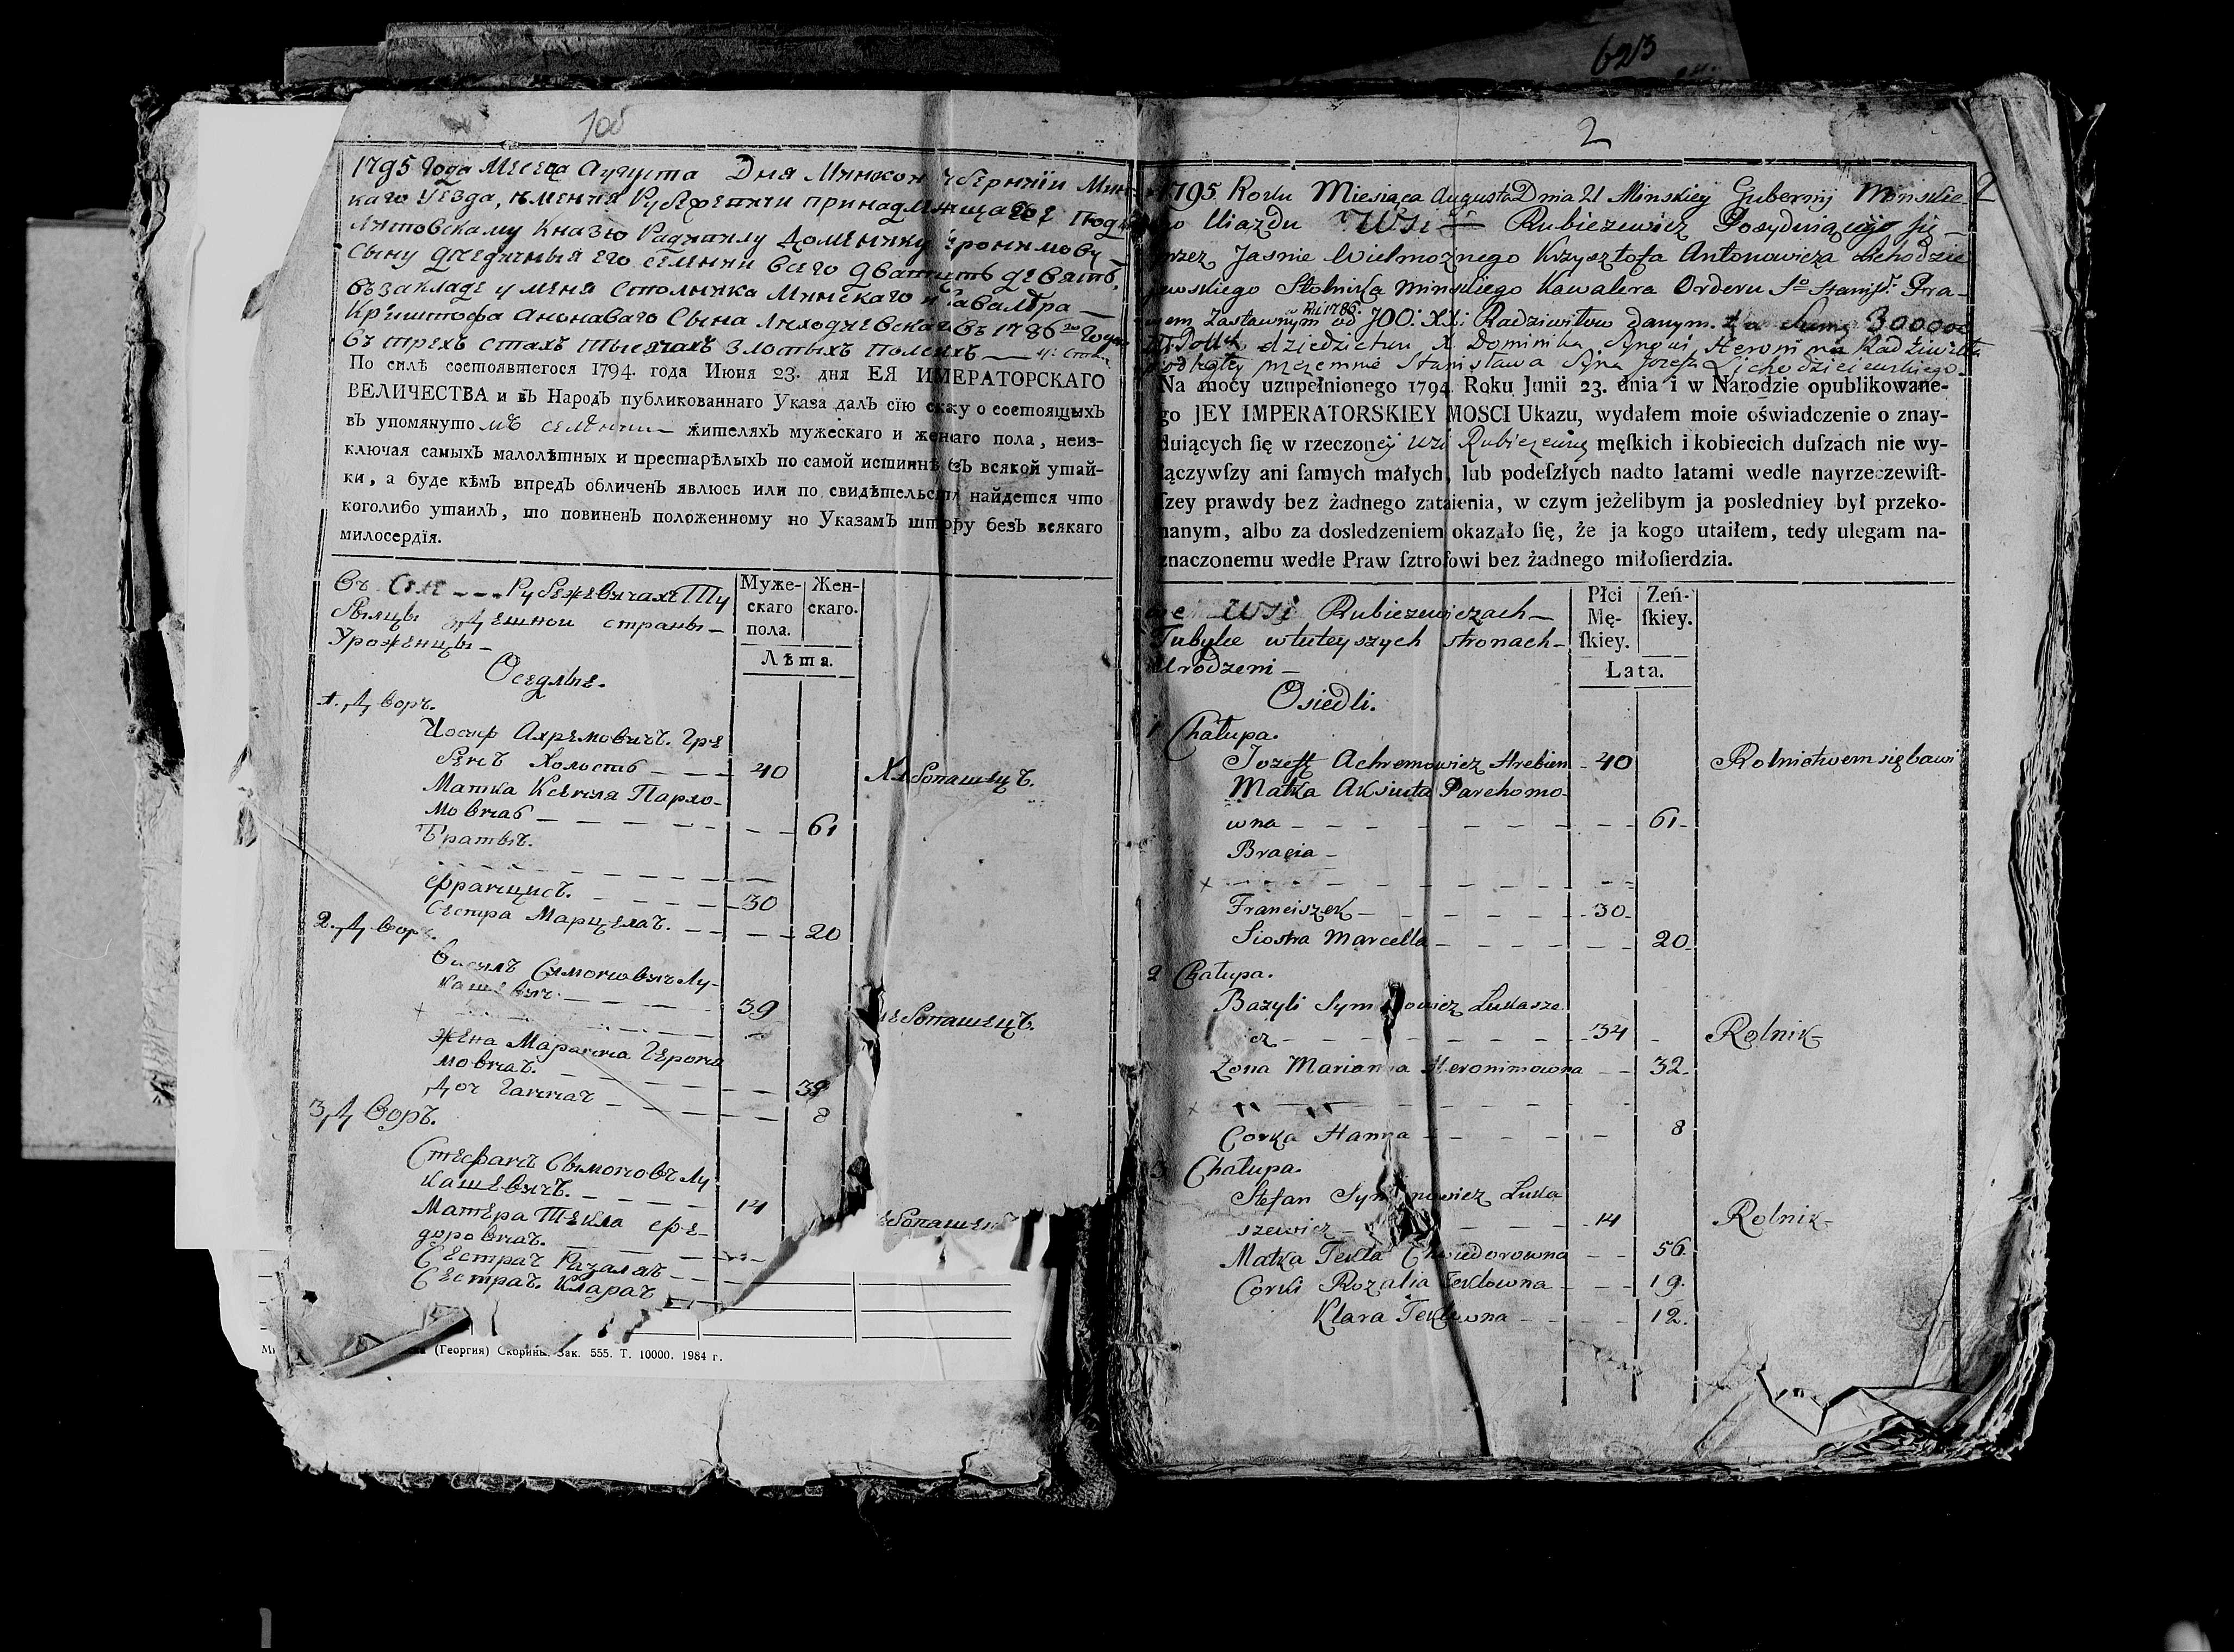 623
10б
1795 Года Месеца Аугуста Дня Минской Губернии Мин-
каго Уезда, имения Рубежевичи принадлежащаго
Литовскому Князю Радзивилу Доминику Еронимову
Сыну
въ закладе у меня Столника Минскаго и Кавалера
Сына въ 1786 20 Году
въ трехъ стахъ тысячахъ Злотыхъ Полскихъ
По силѣ состоявшегося 1794. года Июня 23. дня ЕЯ ИМЕРАТОРСКАГО
ВЕЛИЧЕСТВА и въ Народъ публикованнаго Указа далъ сїю скжу о состоящыхъ
въ упомянутомъ селении жителяхъ мужескаго и женкаго пола, неиз-
ключая самыхъ малолѣтных и престарѣлыхъ по самой истиннѣ безъ всякой утай-
ки, а буде кѣмъ впредъ обличенъ явлюсь или по свидѣтельству найдется что
коголибо утаилъ, то повиненъ положенному но Указамъ штрфу безъ всякаго
милосердїя.
Въ Селе Рубежевичахъ Ту
здешной страны
Уроженцы
Муже-
скаго
пола.
Жен-
скаго.
Лѣта.
Оседлые.
1. Дворъ.
Иосиф Ахремовичъ Гре
бенъ Холостъ 40 Хлебопашецъ.
Матка Ксеня Пархо-
мовна 61
Братья.
Францис. 30
Сестра Марцела. 20
2. Дворъ.
Василь Симоновичъ Лу-
кашевич 39 лебопашецъ.
Жена Марянна Герони
мовна. 39
Доч Ганна 8
3 Дворъ.
Стефанъ Симоновъ Лу
кашевичъ. 14 ебопашец
Матера Текла Фе-
доровна.
Сестра Разаля
Сестра Клара
(Георгия) Скорины. Зак. 555. Т. 10000. 1984 г.
2
2
1795 Roku Miesiąca Augusta Dnia 21 Minskiey Gubernij Minskie-
go Uiazdu Wsi Rubiezewicz Posyduiącego się
przez Jasnie Wielmożnego Krzysztofa Antonowicza Lichodzie
jewskiego Stolnika Minskiego Kawalera Orderu So Stanisł. Pra-
wem Zastawnym Ru 1786. od JOO. XX: Radziwiłow danym. za Sumę 300000
Zł. Polsk dziedzictwu X Dominika Syna Heronima Radziwiłła
podjętey przezemnie Stanisława Syna Jozefa Lichodziejewskiego.
Na mocy uzupełnionego 1794 Roku Junii 23. dnia i w Narodzie opublikowane-
go JEY IMPERATORSKIEY MOSCI Ukazu, wydałem moie oświadczenie o znay-
duiących ſię w rzeczoney Wsi Rubiezewicz męſkich i kobiecich duſzach nie wy-
łączywſzy ani ſamych małych, lub podeſzłych nadto latami wedle nayrzeczewiſt-
ſzey prawdy bez żadnego zataienia, w czym jeżelibym ja posledniey był przeko-
nanym, albo za dosledzeniem okazało ſię, że ja kogo utaiłem, tedy ulegam na-
znaczonemu wedle Praw ſztrofowi bez żadnego miłoſierdzia.
we Wsi Rubiezewiczach
Tubylce wtuteyszych stronach
Urodzeni
Płci
Mę-
ſkiey.
Zeń-
ſkiey.
Lata.
Osiedli.
1 Chałupa.
Jozeff Achremowicz Hrebien 40 Rolnictwem się bawi
Matka Aksiuta Parchomo-
wna 61
Bracia
Franciszek 30
Siostra Marcella 20
2 Chałupa.
Bazyli Symonowicz Łukasze
icz 34 Rolnik
Zona Marianna Heronimowna 32
Corka Hanna 8
3 Chałupa.
Stefan Symonowicz Łuka
szewicz 14 Rolnik
Matka Tekla Chwiedorowna 56
Corki Rozalia Teklowna 19.
Klara Teklowna 12.